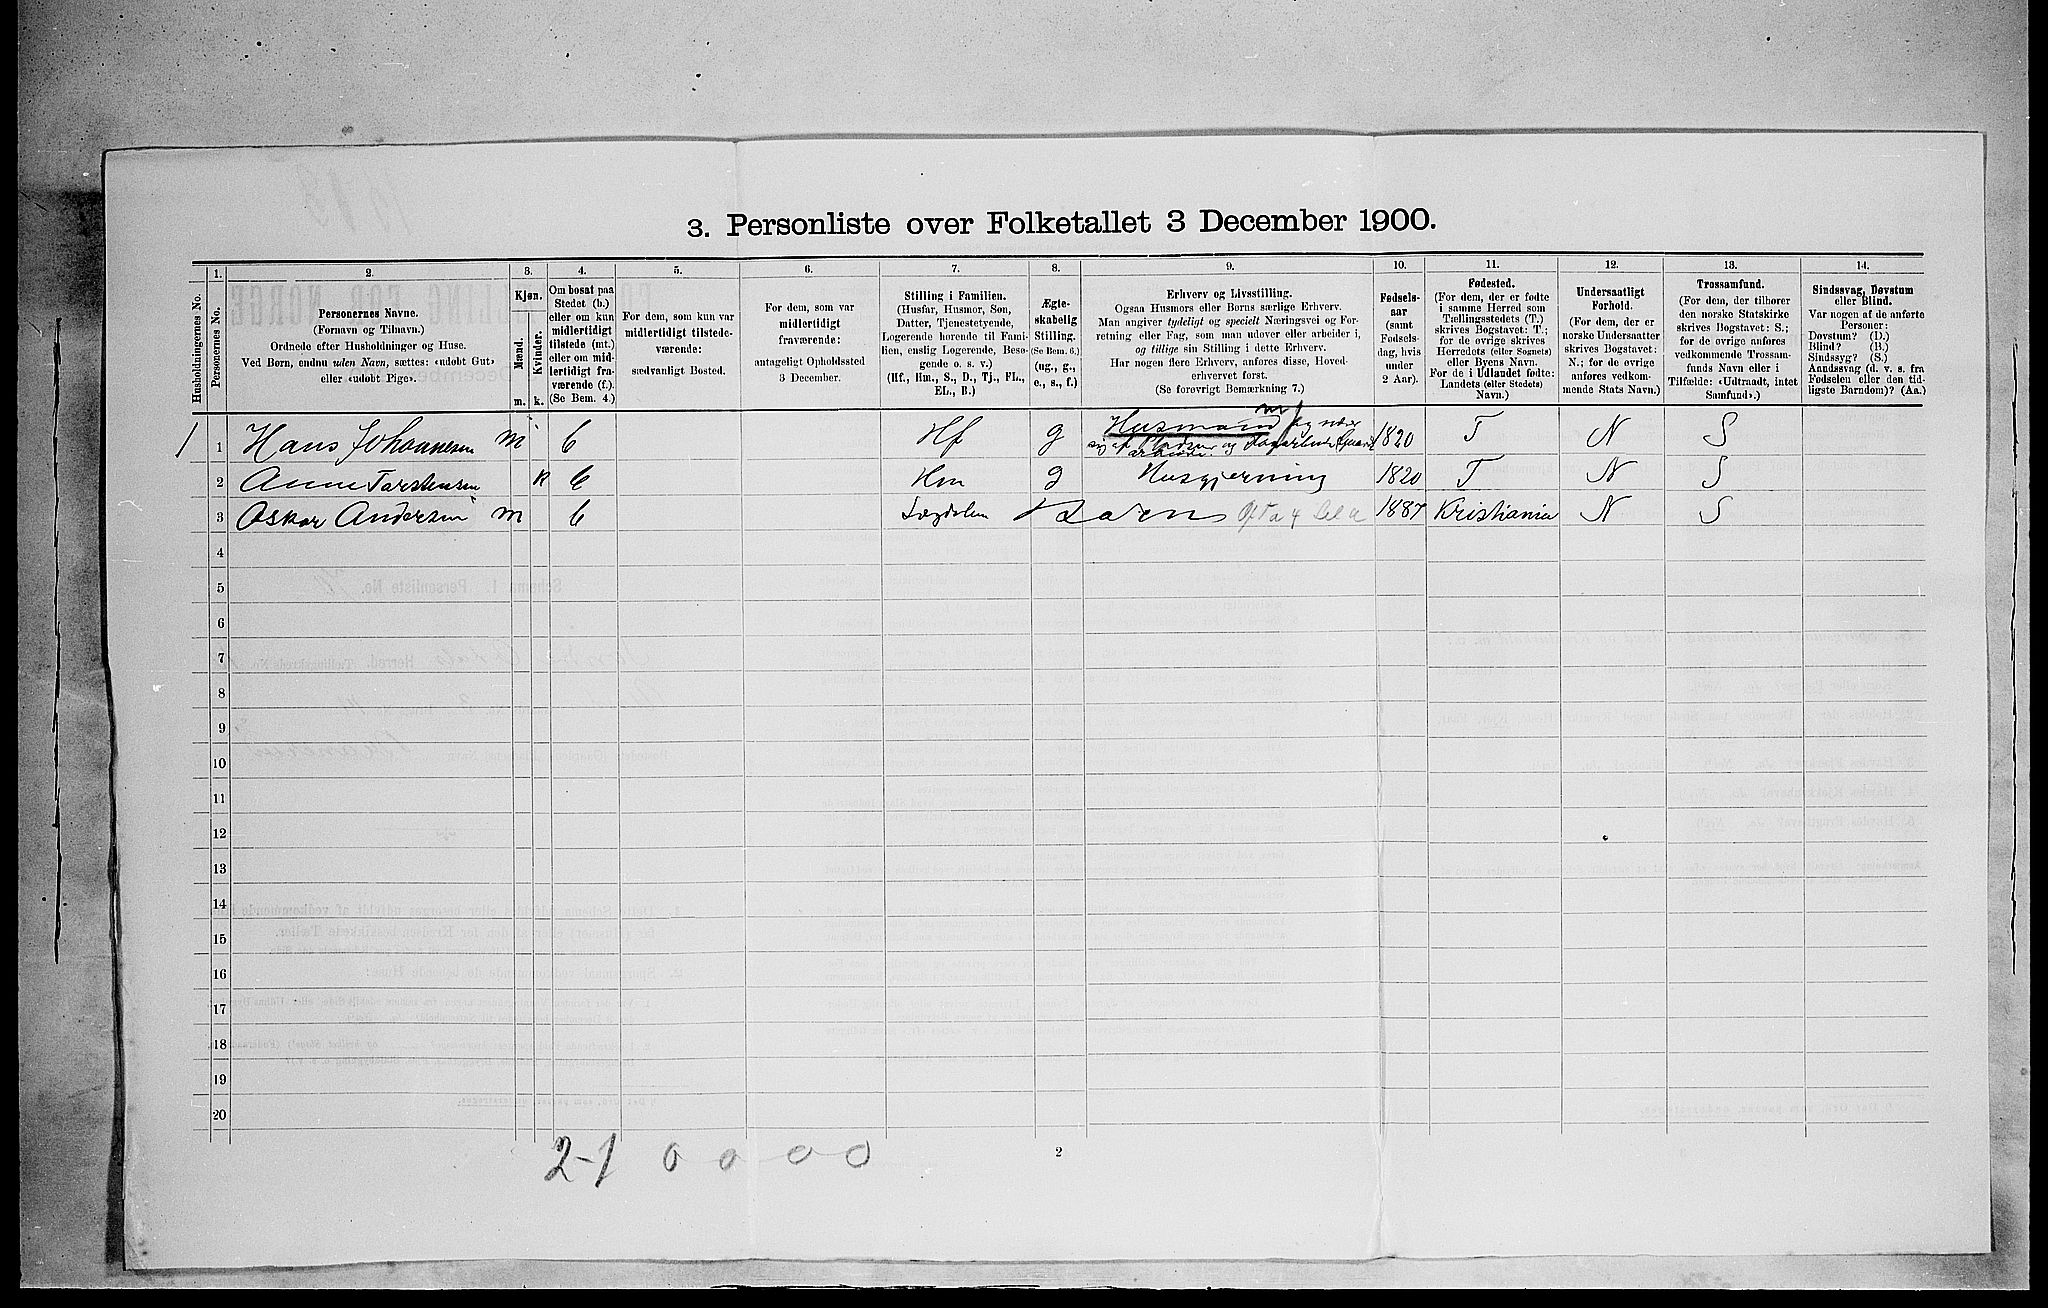 3. Personliste over Folketallet 3 December 1900.
Husholdningernes No.
1.
Personernes No.
2.
Personernes Navne.
(Fornavn og Tilnavn.)
Ordnede efter Husholdninger og Huse.
Ved Børn, endnu uden Navn, sættes: «udøbt Gut»
eller «udøbt Pige».
3.
Kjøn.
Mænd.
Kvinder.
m. k.
4.
Om bosat paa
Stedet (b.)
eller om kun
midlertidigt
tilstede (mt.)
eller om mid-
lertidigt fra-
værende (f.)
(Se Bem. 4.)
5.
For dem, som kun var
midlertidigt tilstede-
værende:
sædvanligt Bosted.
6.
For dem, som var
midlertidigt
fraværende:
antageligt Opholdssted
3 December.
7.
Stilling i Familien.
(Husfar, Husmor, Søn,
Datter, Tjenestetyende,
Logerende hørende til Fami-
lien, enslig Logerende, Besø-
gende o. s. v.)
(Hf., Hm., S., D., Tj., FL.,
EL., B.)
8.
Ægte-
skabelig
Stilling.
(Se Bem. 6.)
(ug., g.,
e., s., f.)
9.
Erhverv og Livsstilling.
Ogsaa Husmors eller Børns særlige Erhverv.
Man angiver tydeligt og specielt Næringsvei og For-
retning eller Fag, som man udøver eller arbeider i,
og tillige sin Stilling i dette Erhverv.
Har nogen flere Erhverv, anføres disse, Hoved-
erhvervet først.
(Se forøvrigt Bemærkning 7.)
10.
Fødsels-
aar
(samt
Fødsels-
dag, hvis
under
2 Aar).
11.
Fødested.
(For dem, der er fødte
i samme Herred som
Tællingsstedets (T.)
skrives Bogstavet: T.;
for de øvrige skrives
Herredets (eller Sognets)
eller Byens Navn.
For de i Udlandet fødte:
Landets (eller Stedets)
Navn.)
12.
Undersaatligt
Forhold.
(For dem, der er
norske Undersaatter
skrives Bogstavet:
N.; for de øvrige
anføres vedkom-
mende Stats Navn.)
13.
Trossamfund.
(For dem, der tilhører
den norske Statskirke
skrives Bogstavet: S.;
for de øvrige anføres
vedkommende Trossam-
funds Navn eller i
Tilfælde: «Udtraadt, intet
Samfund».)
14.
Sindssvag, Døvstum
eller Blind.
Var nogen af de anførte
Personer:
Døvstum? (D.)
Blind? (B.)
Sindssyg? (S.)
Aandssvag (d. v. s. fra
Fødselen eller den tid-
ligste Barndom)? (Aa.)
1 1 Hans Johannesen m 6 Hf g Husmand m/ 1820 T N S
2 Anne Torstensen k 6 Hm g Husgjerning 1820 T N S
3 Oskar Andersen m 6 Lægdslem Barn 1887 Kristiania N S
4
5
6
7
8
9
10
11
12
13
14
15
16
17
18
19
20
2-1 0 0 0 0
2